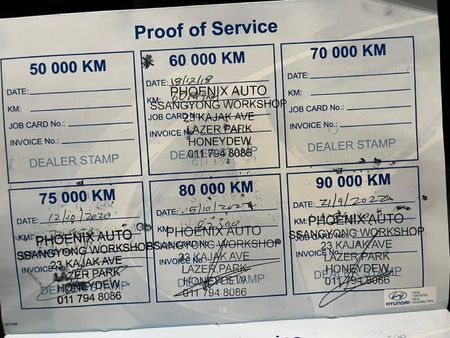 Proof of Service
50 000 KM
DATE:
KM:
JOB CARD No.:
INVOICE No.:
DEALER STAMP
60 000 KM
DATE: 18/12/18
KM:
JOB CARD
INVOICE
PHOENIX AUTO
SSANGYONG WORKSHOP
23 KAJAK AVE
LAZER PARK
HONEYDEW
011 794 8086
70 000 KM
DATE:
KM:
JOB CARD No.:
INVOICE No.:
DEALER STAMP
75 000 KM
DATE: 12/10/2020
PHOENIX AUTO
SSANGYONG WORKSHOP
23 KAJAK AVE
LAZER PARK
HONEYDEW
011 794 8086
80 000 KM
DATE:
PHOENIX AUTO
SSANGYONG WORKSHOP
23 KAJAK AVE
LAZER PARK
HONEYDEW
011 794 8086
90 000 KM
DATE: 21/9/2022
PHOENIX AUTO
SSANGYONG WORKSHOP
23 KAJAK AVE
LAZER PARK
HONEYDEW
011 794 8086
18
HYUNDAI